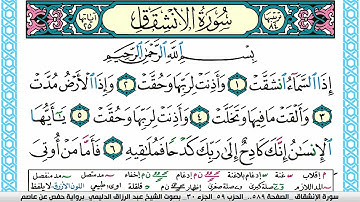 ترتيبها ٨٤
سُورَةُ الانشِقَاقِ
آياتها ٢٥
بِسْمِ اللَّهِ الرَّحْمَٰنِ الرَّحِيمِ
إِذَا السَّمَاءُ انشَقَّتْ ١ وَأَذِنَتْ لِرَبِّهَا وَحُقَّتْ ٢ وَإِذَا الْأَرْضُ مُدَّتْ
٣ وَأَلْقَتْ مَا فِيهَا وَتَخَلَّتْ ٤ وَأَذِنَتْ لِرَبِّهَا وَحُقَّتْ ٥ يَا أَيُّهَا
الْإِنسَانُ إِنَّكَ كَادِحٌ إِلَىٰ رَبِّكَ كَدْحًا فَمُلَاقِيهِ ٦ فَأَمَّا مَنْ أُوتِيَ
سورة الإنشقاق - الصفحة ٥٨٩ - الحزب ٥٩ الجزء ٣٠ - بصوت الشيخ عبد الرزاق الدليمي - برواية حفص عن عاصم